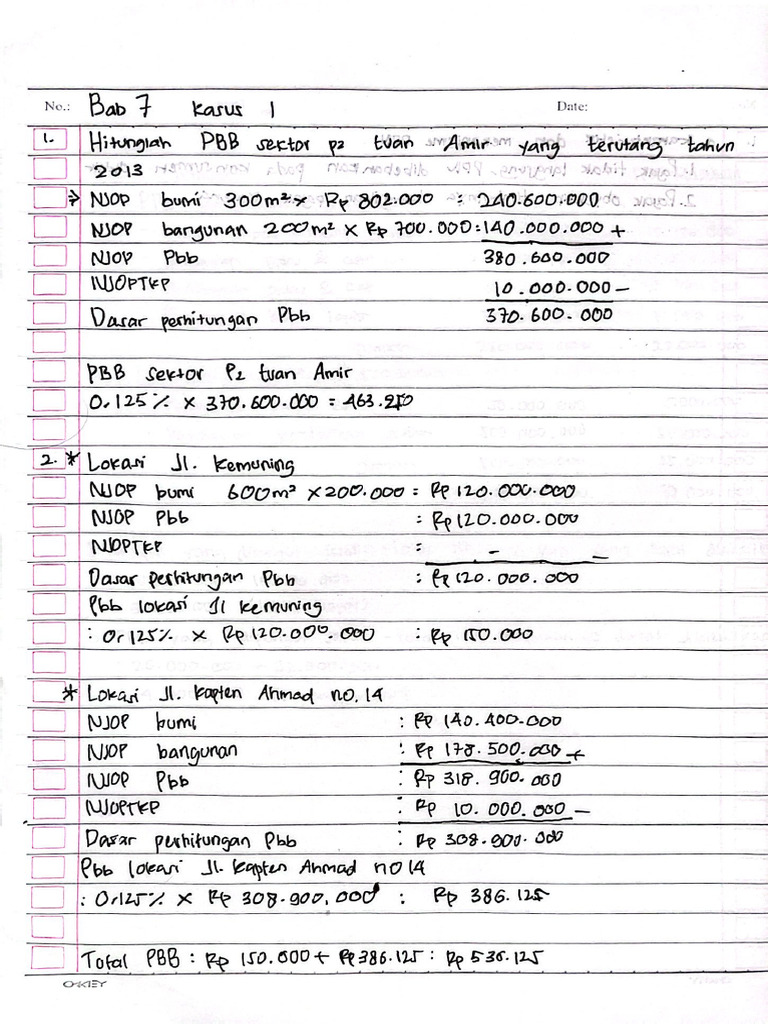 No.: Bab 7 Kasus 1 Date:
1. Hitunglah PBB sektor p2 tuan Amir yang terutang tahun
2013
→ NJOP bumi 300m² × Rp 802.000 = 240.600.000
NJOP bangunan 200m² × Rp 700.000 : 140.000.000 +
NJOP Pbb 380.600.000
NJOPTKP 10.000.000 -
Dasar perhitungan Pbb 370.600.000
PBB sektor P2 tuan Amir
0,125% × 370.600.000 = 463.250
2. * Lokasi Jl. Kemuning
NJOP bumi 600m² × 200.000 = Rp 120.000.000
NJOP Pbb : Rp 120.000.000
NJOPTKP : - -
Dasar perhitungan Pbb : Rp 120.000.000
Pbb lokasi Jl Kemuning
: 0,125% × Rp 120.000.000 : Rp 150.000
* Lokasi Jl. Kapten Ahmad no. 14
NJOP bumi : Rp 140.400.000
NJOP bangunan : Rp 178.500.000 +
NJOP Pbb : Rp 318.900.000
NJOPTKP : Rp 10.000.000 -
Dasar perhitungan Pbb : Rp 308.900.000
Pbb lokasi Jl. Kapten Ahmad no 14
: 0,125% × Rp 308.900.000 : Rp 386.125
Total PBB : Rp 150.000 + Rp 386.125 : Rp 536.125